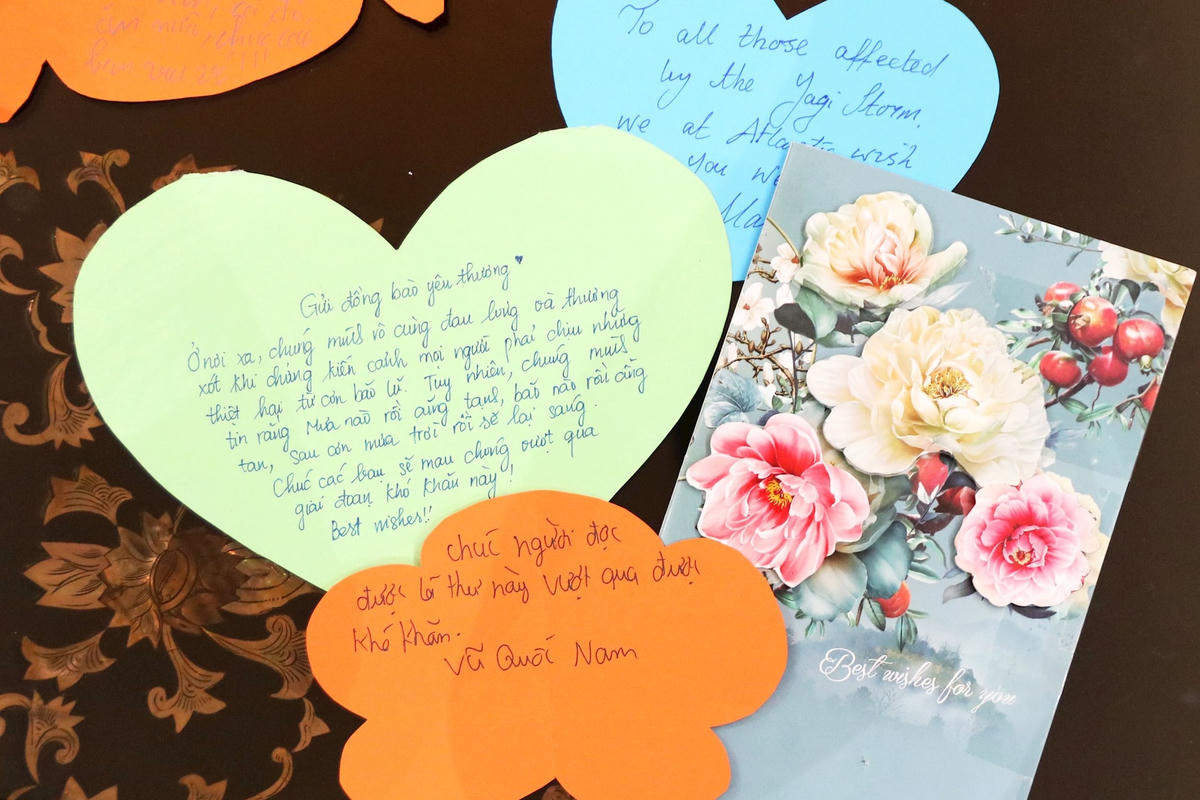 To all those affected
by the Yagi Storm.
we at Atlantic wish
you
Gửi đồng bào yêu thương
Ở nơi xa, chúng mình vô cùng đau lòng và thương
xót khi chứng kiến cảnh mọi người phải chịu những
thiệt hại từ cơn bão lũ. Tuy nhiên, chúng mình
tin rằng mưa nào rồi cũng tạnh, bão nào rồi cũng
tan, sau cơn mưa trời rồi sẽ lại sáng.
Chúc các bạn sẽ mau chóng vượt qua
giai đoạn khó khăn này!
Best wishes!!
chúc người đọc
được lá thư này vượt qua được
khó khăn.
Vũ Quốc Nam
Best wishes for you